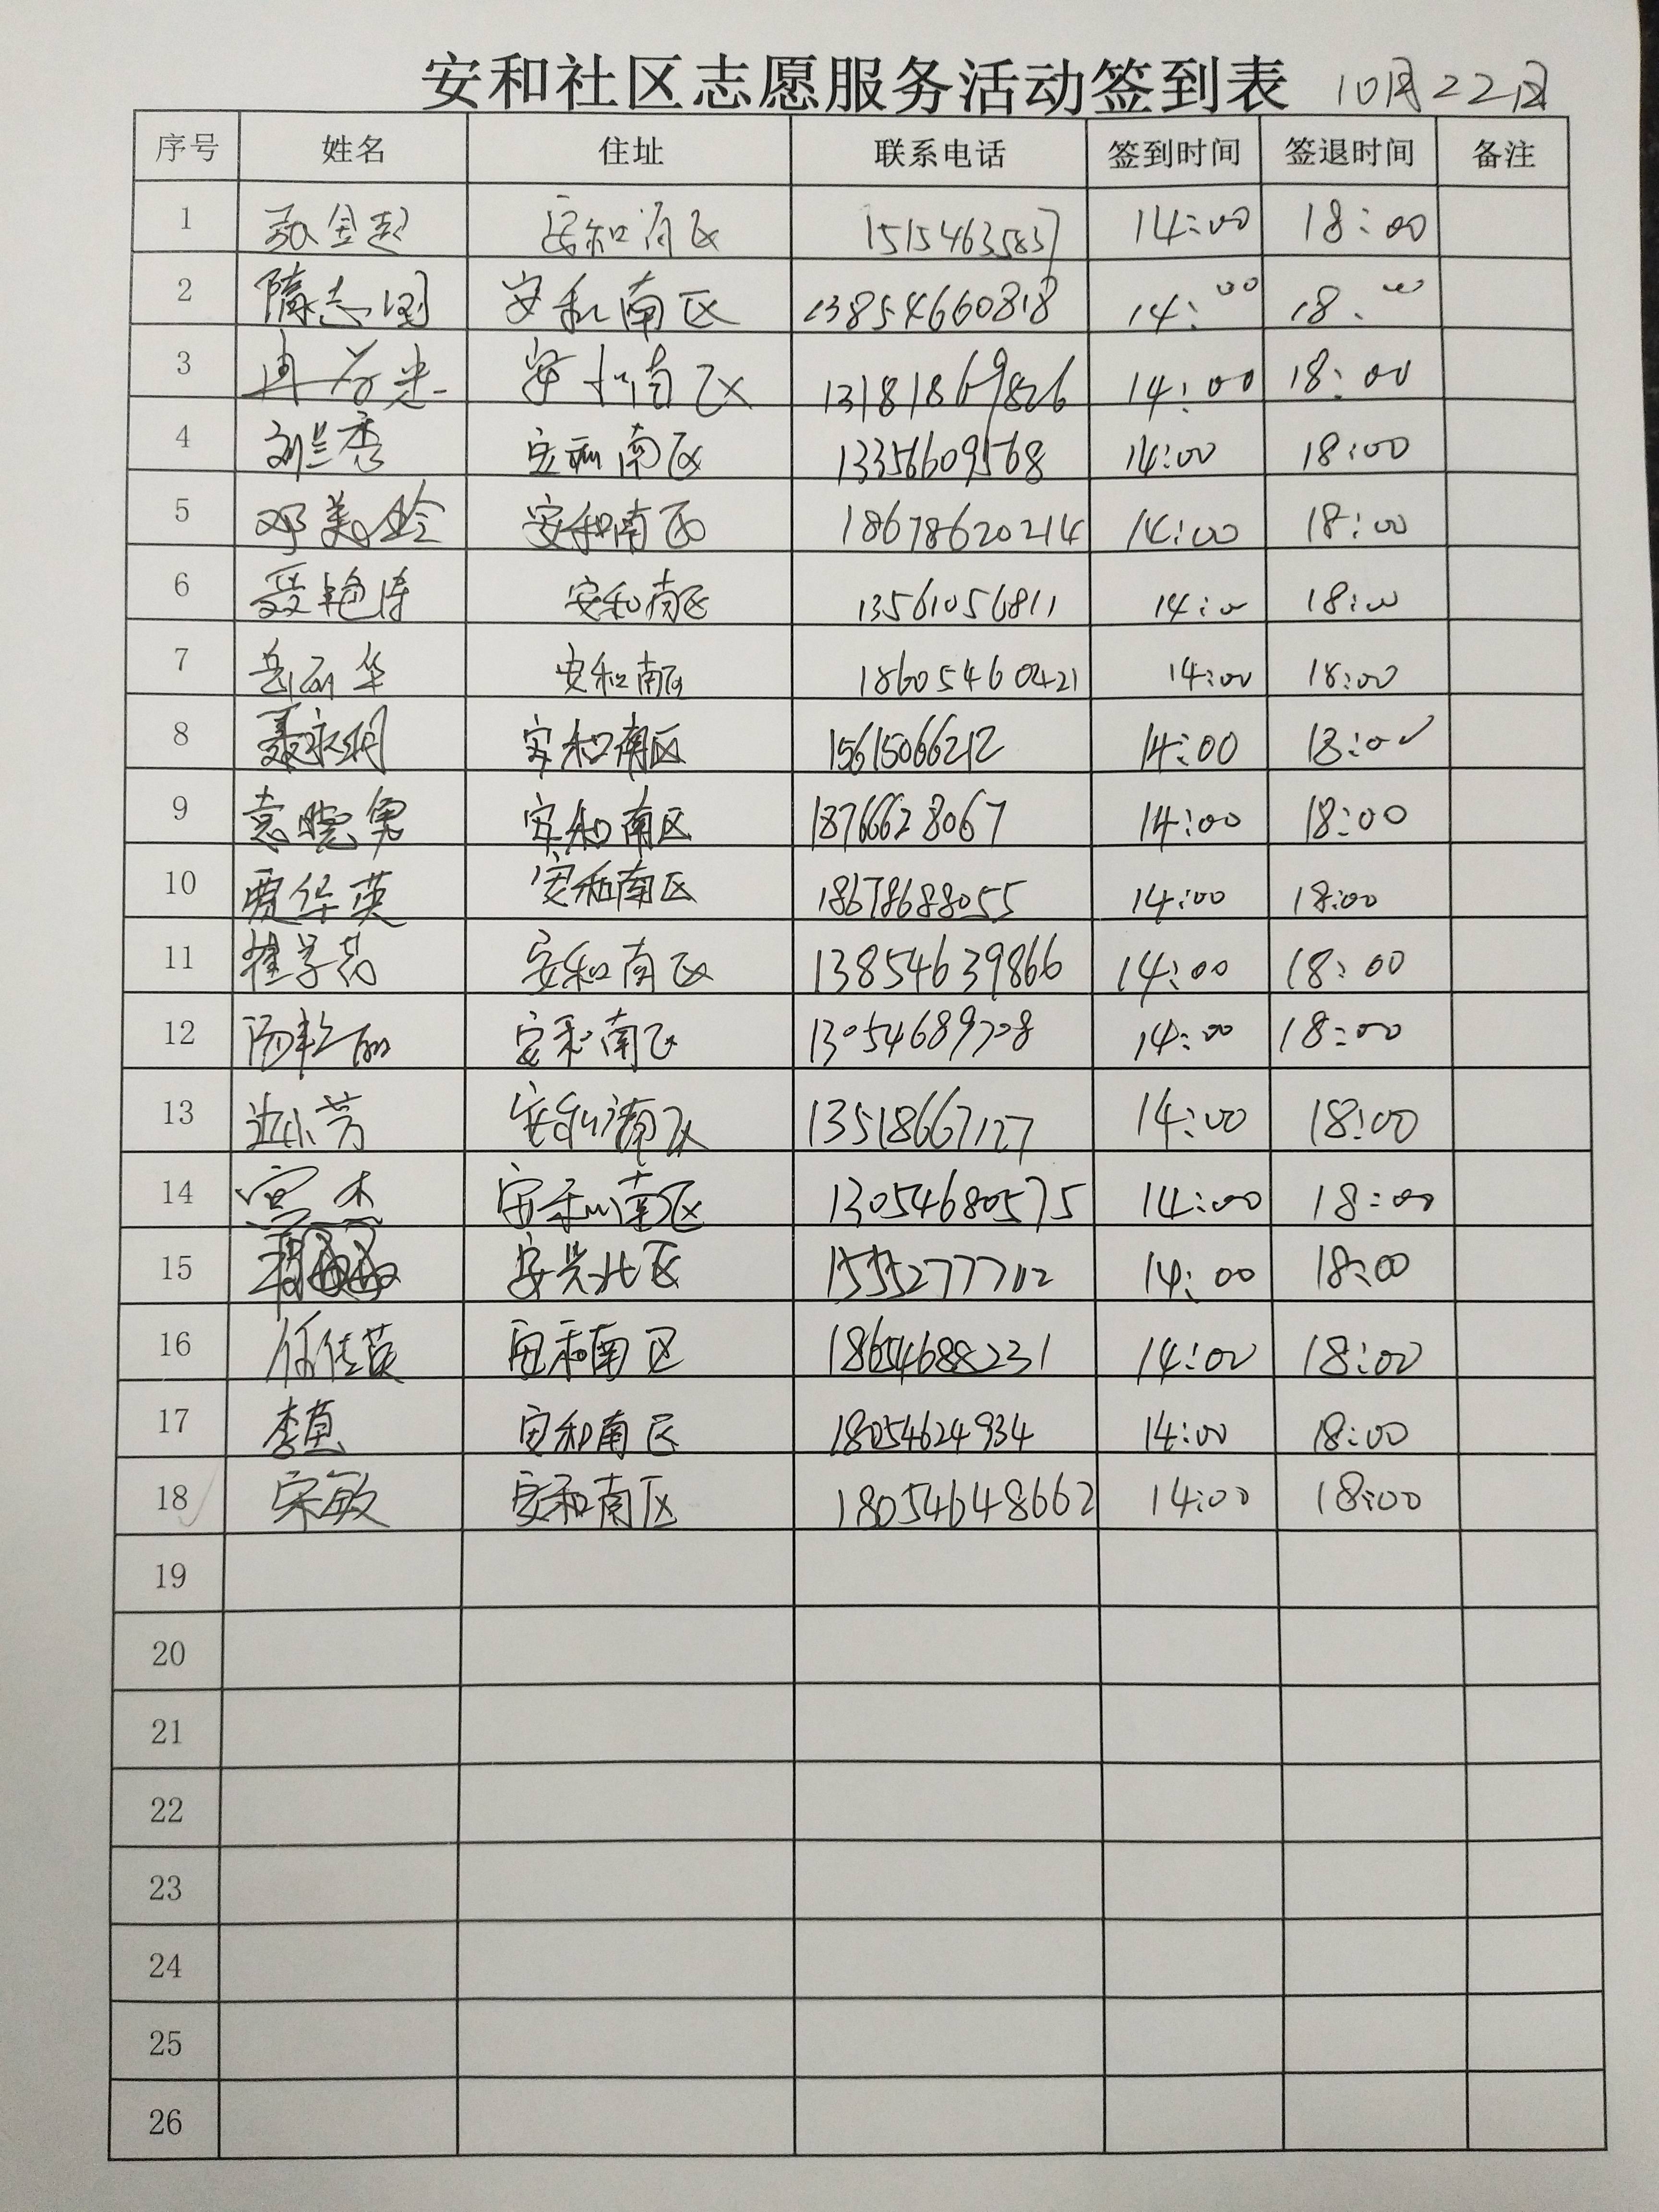 安和社区志愿服务活动签到表 10月22日
序号 姓名 住址 联系电话 签到时间 签退时间 备注
1 安和南区 14:00 18:00
2 隋志国 安和南区 13854660818 14:00 18:00
3 安和南区 13181869826 14:00 18:00
4 刘兰秀 安和南区 13356609568 14:00 18:00
5 邓美玲 安和南区 18678620214 14:00 18:00
6 聂艳涛 安和南区 13561056811 14:00 18:00
7 岳丽华 安和南区 18605460421 14:00 18:00
8 聂永明 安和南区 15615066212 14:00 18:00
9 袁晓勇 安和南区 18766628067 14:00 18:00
10 贾华英 安和南区 18678688055 14:00 18:00
11 崔学芳 安和南区 13854639866 14:00 18:00
12 安和南区 13054689708 14:00 18:00
13 边小芳 安和南区 13518667127 14:00 18:00
14 宫杰 安和南区 13054680575 14:00 18:00
15 安兴北区 15552777102 14:00 18:00
16 任佳英 安和南区 18654688231 14:00 18:00
17 李真 安和南区 18054624934 14:00 18:00
18 宋敏 安和南区 18054648662 14:00 18:00
19
20
21
22
23
24
25
26